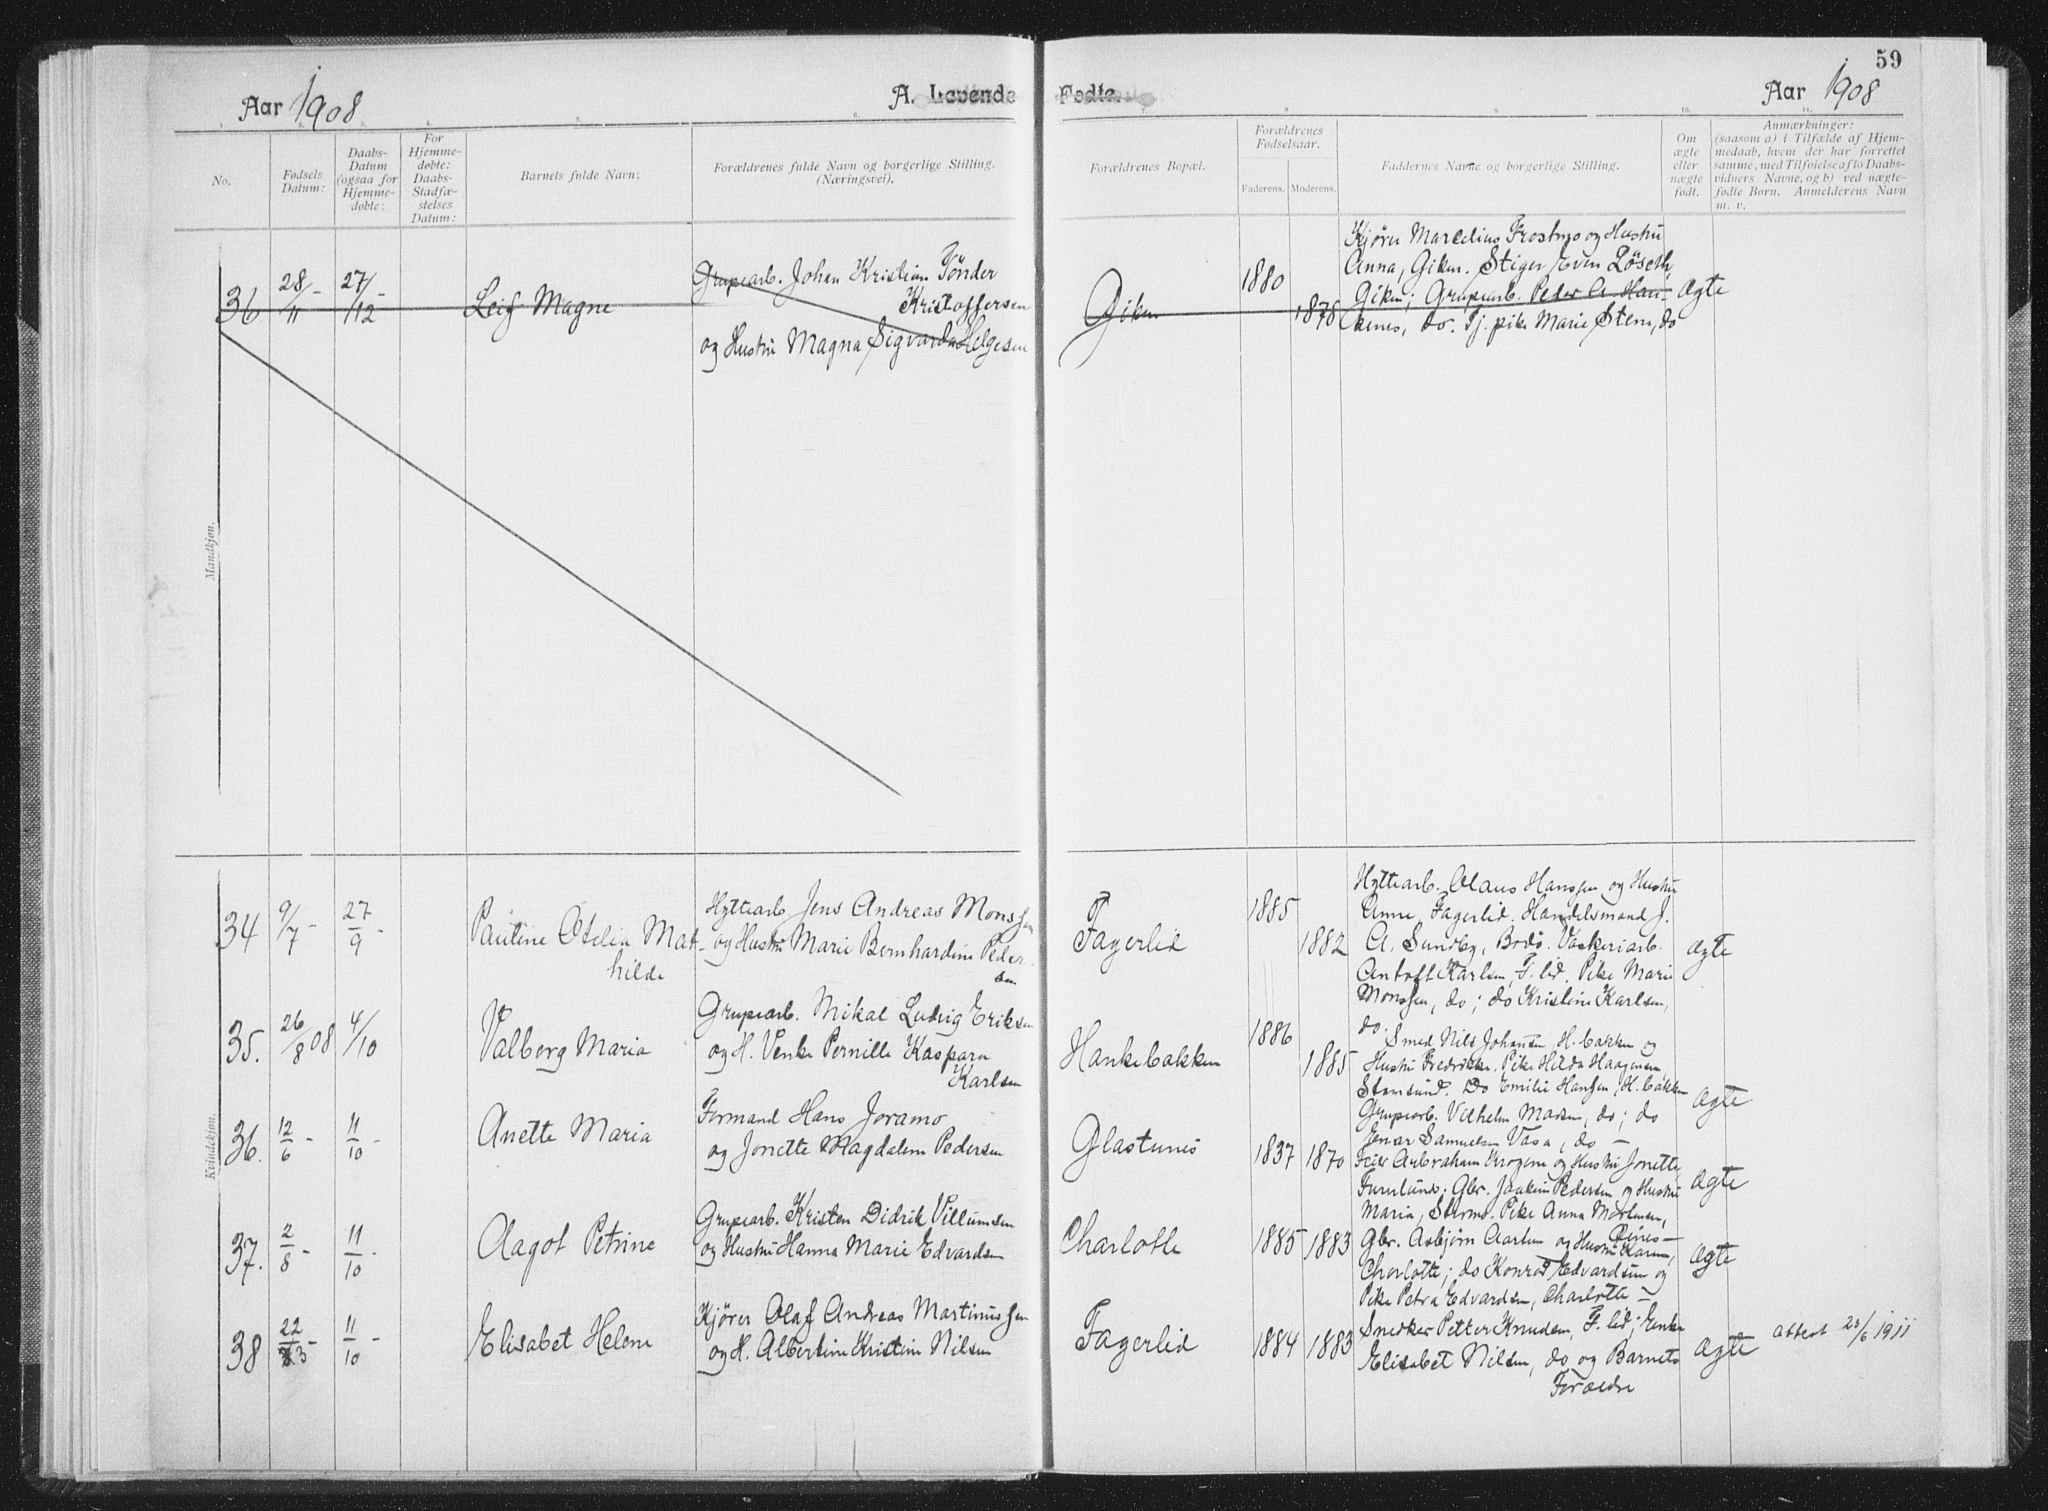 59
Aar 1908
A. Levende Fødte.
Aar 1908
1. 2. 3. 4. 5. 6. 7. 8. 9. 10. 11.
No.
Fødsels
Datum:
Daabs-
Datum
(ogsaa for
Hjemme-
døbte:
For
Hjemme-
døbte:
Daabs-
Stadfæ-
stelses
Datum:
Barnets fulde Navn:
Forældrenes fulde Navn og borgerlige Stilling.
(Næringsvei).
Forældrenes Bopæl.
Forældrenes
Fødselsaar.
Faderens. Moderens.
Faddernes Navne og borgerlige Stilling.
Om
ægte
eller
uægte
født.
Anmærkninger:
(saasom a) i Tilfælde af Hjem-
medaab, hvem der har forrettet
samme, med Tilføielse af to Daabs-
vidners Navne, og b) ved uægte-
fødte Børn. Anmelderens Navn
m. v.
Mandkjøn.
36
28/11 -
27/12 -
Leif Magne
Grubearb. Johan Kristian Tønder
Kristoffersen
og Hustru Magna Sigvarda Helgesen
Giken
1880
1878
Kjører Marcelius Frostmo og Hustru
Anna, Giken. Stiger Even Løseth,
Giken; Grubearb. Peder A. Han-
kenes, do. Tj. pike Marie Sten, do
Ægte
Kvindekjøn.
34
9/7 -
27/9 -
Pauline Otelia Mat-
hilde
Hyttearb. Jens Andreas Monssen
og Hustru Marie Bernhardine Peder-
sen
Fagerlid
1885
1882
Hyttearb. Olaus Hanssen og Hustru
Anne, Fagerlid. Handelsmand J.
A. Sundby, Bodø. Vaskeriarb.
Antoft Karlsen, F. lid. Pike Marie
Monssen, do; do Kristine Karlsen,
do.
Ægte
35.
26/8 08
4/10
Valborg Maria
Grubearb. Mikal Ludvig Eriksen
og H. Venke Pernille Kaspara
Karlsen
Hankebakken
1886
1885
Smed Nils Johansen, H. bakken og
Hustru Fredrikke. Pike Hilda Haagensen,
Stamsund. Do Emilie Hansen, H. bakken
Grubearb. Vilhelm Madsen, do; do
Einar Samuelsen Vasa, do -
Ægte
36.
12/6 -
11/10 -
Anette Maria
Formand Hans Joramo
og Jonette Magdalene Pedersen
Glastunes
1837
1870
Feier Abraham Krogene og Hustru Jonette,
Furulund; Gbr. Joakim Pedersen og Hustru
Maria, Stormo. Pike Anna Mortensen,
Ægte
37.
2/8 -
11/10 -
Aagot Petrine
Grubearb. Kristen Didrik Villumsen
og Hustru Hanna Marie Edvardsen
Charlotte
1885
1883
Gbr. Asbjørn Aarlun og Hustru Karen,
Charlotte; do Konrad Edvardsen og
Pike Petra Edvardsen, Charlotte -
Ægte
38
22/3 -
11/10 -
Elisabet Helene
Kjører Olaf Andreas Martinussen
og H. Albertine Kristine Nilsen
Fagerlid
1884
1883
Snedker Petter Knudsen, F. lid; Enke
Elisabet Nilsen, do og Barnets
Forældre
Ægte
Attest 23/6 1911